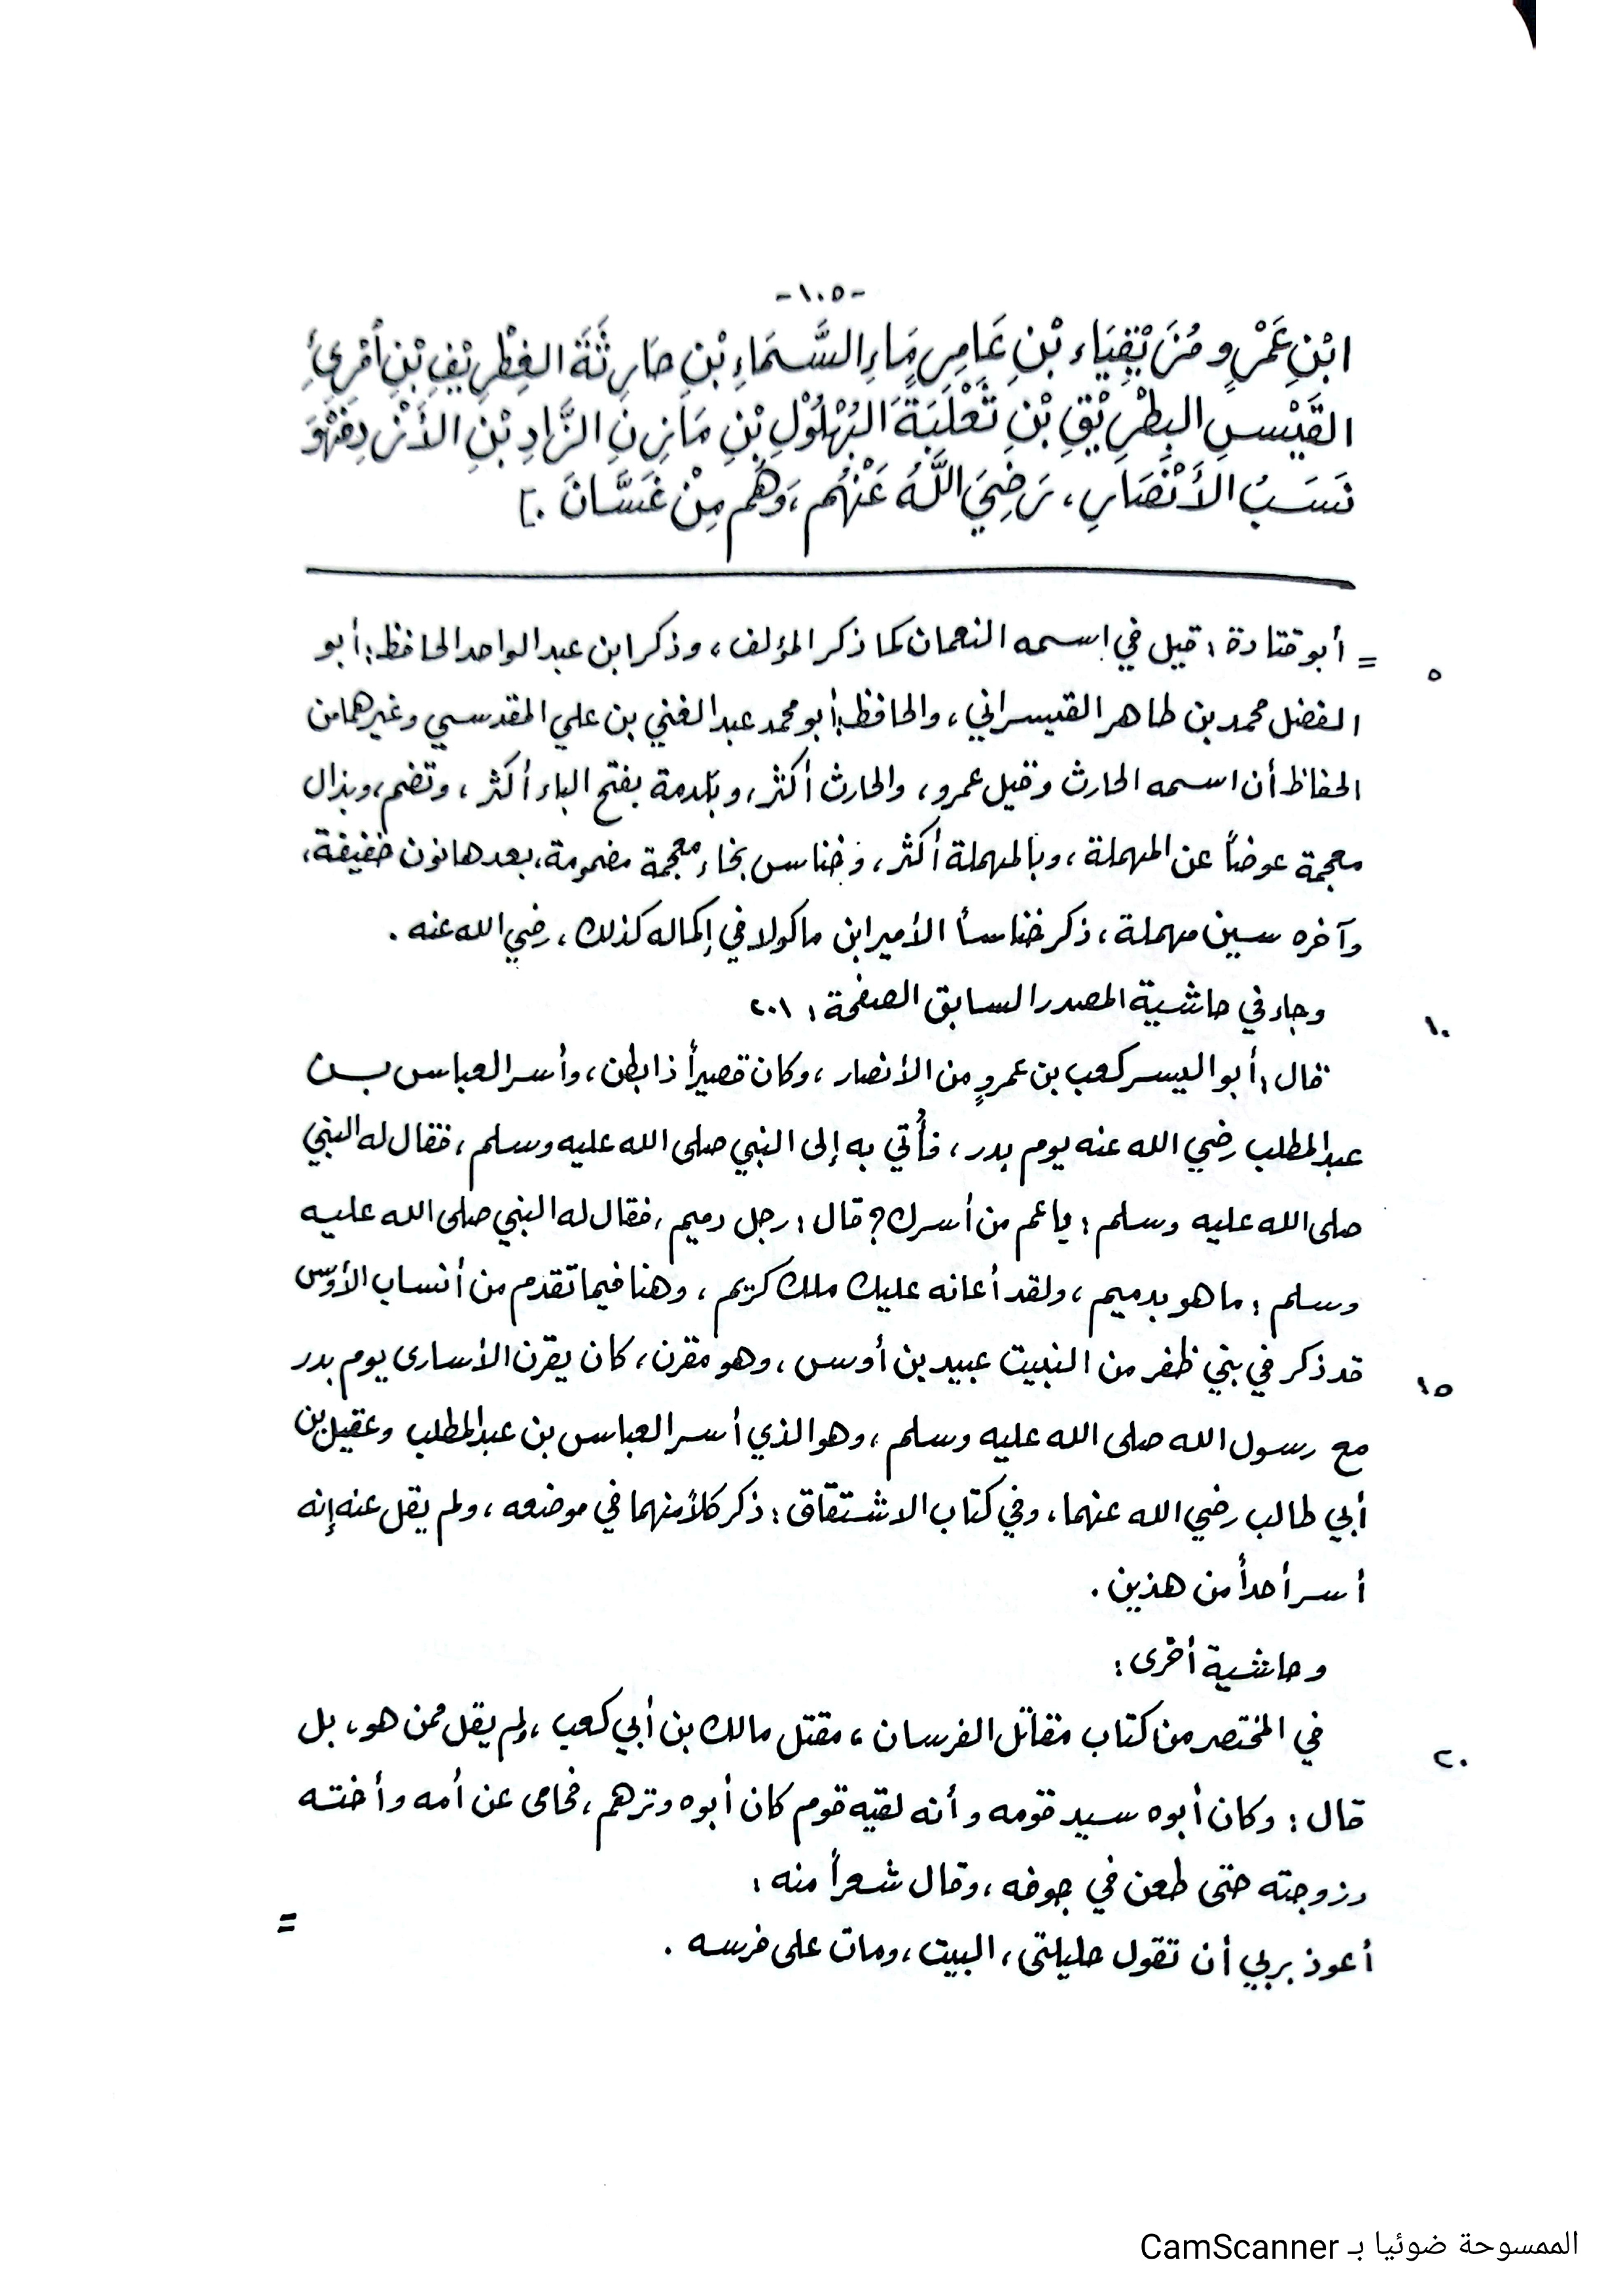 -١٠٥-
ابْنِ عَمْرٍو مُزَيْقِيَاء بْنِ عَامِرٍ مَاءِ السَّمَاءِ بْنِ حَارِثَةَ الغِطْرِيْفِ بْنِ أمْرِئِ
القَيْسِ البِطْرِيْقِ بْنِ ثَعْلَبَةَ البُهْلُوْلِ بْنِ مَازِنِ الزَّادِ بْنِ الأَزْدِ فَهُوَ
نَسَبُ الأَنْصَارِ، رَضِيَ اللَّهُ عَنْهُم، وَهُم مِنْ غَسَّانَ .]
= أبو قتادة : قيل في اسمه النعمان كما ذكر المؤلف ، وذكر ابن عبد الواحد الحافظ : أبو
٥
الفضل محمد بن طاهر القيسراني ، والحافظ : أبو محمد عبد الغني بن علي المقدسي وغيرهما من
الحفاظ أن اسمه الحارث وقيل عمرو ، والحارث أكثر ، وبلدمة بفتح الباء أكثر ، وتضم ، وبذال
معجمة عوضاً عن المهملة ، وبالمهملة أكثر ، وخناس بخاء معجمة مضمومة ، بعدها نون خفيفة ،
وآخره سين مهملة ، ذكر خناساً الأمير ابن ماكولا في إكماله كذلك ، رضي الله عنه .
وجاء في حاشية المصدر السابق الصفحة : ٢٠١
١٠
قال : أبو اليسر كعب بن عمروٍ من الأنصار ، وكان قصيراً ذا بطن ، وأسر العباس بن
عبد المطلب رضي الله عنه يوم بدر ، فأُتي به إلى النبي صلى الله عليه وسلم ، فقال له النبي
صلى الله عليه وسلم : يا عم من أسرك ؟ قال : رجل دميم ، فقال له النبي صلى الله عليه
وسلم : ما هو بدميم ، ولقد أعانه عليك ملك كريم ، وهنا فيما تقدم من أنساب الأوس
قد ذكر في بني ظفر من النبيت عبيد بن أوس ، وهو مقرن ، كان يقرن الأسارى يوم بدر
١٥
مع رسول الله صلى الله عليه وسلم ، وهو الذي أسر العباس بن عبد المطلب وعقيل بن
أبي طالب رضي الله عنهما ، وفي كتاب الاشتقاق : ذكر كلاً منهما في موضعه ، ولم يقل عنه إنه
أسر أحداً من هذين .
وحاشية أخرى :
في المختصر من كتاب مقاتل الفرسان ، مقتل مالك بن أبي كعب ، ولم يقل ممن هو ، بل
٢٠
قال : وكان أبوه سيد قومه وأنه لقيه قوم كان أبوه وترهم ، فحامى عن أمه وأخته
وزوجته حتى طعن في جوفه ، وقال شعراً منه :
أعوذ بربي أن تقول حليلتى ، البيت ، ومات على فرسه .
=
الممسوحة ضوئيا بـ CamScanner